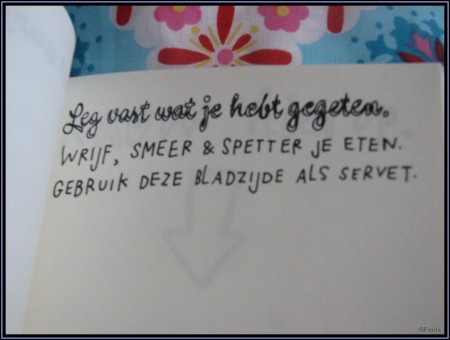 Leg vast wat je hebt gegeten.
WRIJF, SMEER & SPETTER JE ETEN.
GEBRUIK DEZE BLADZIJDE ALS SERVET.